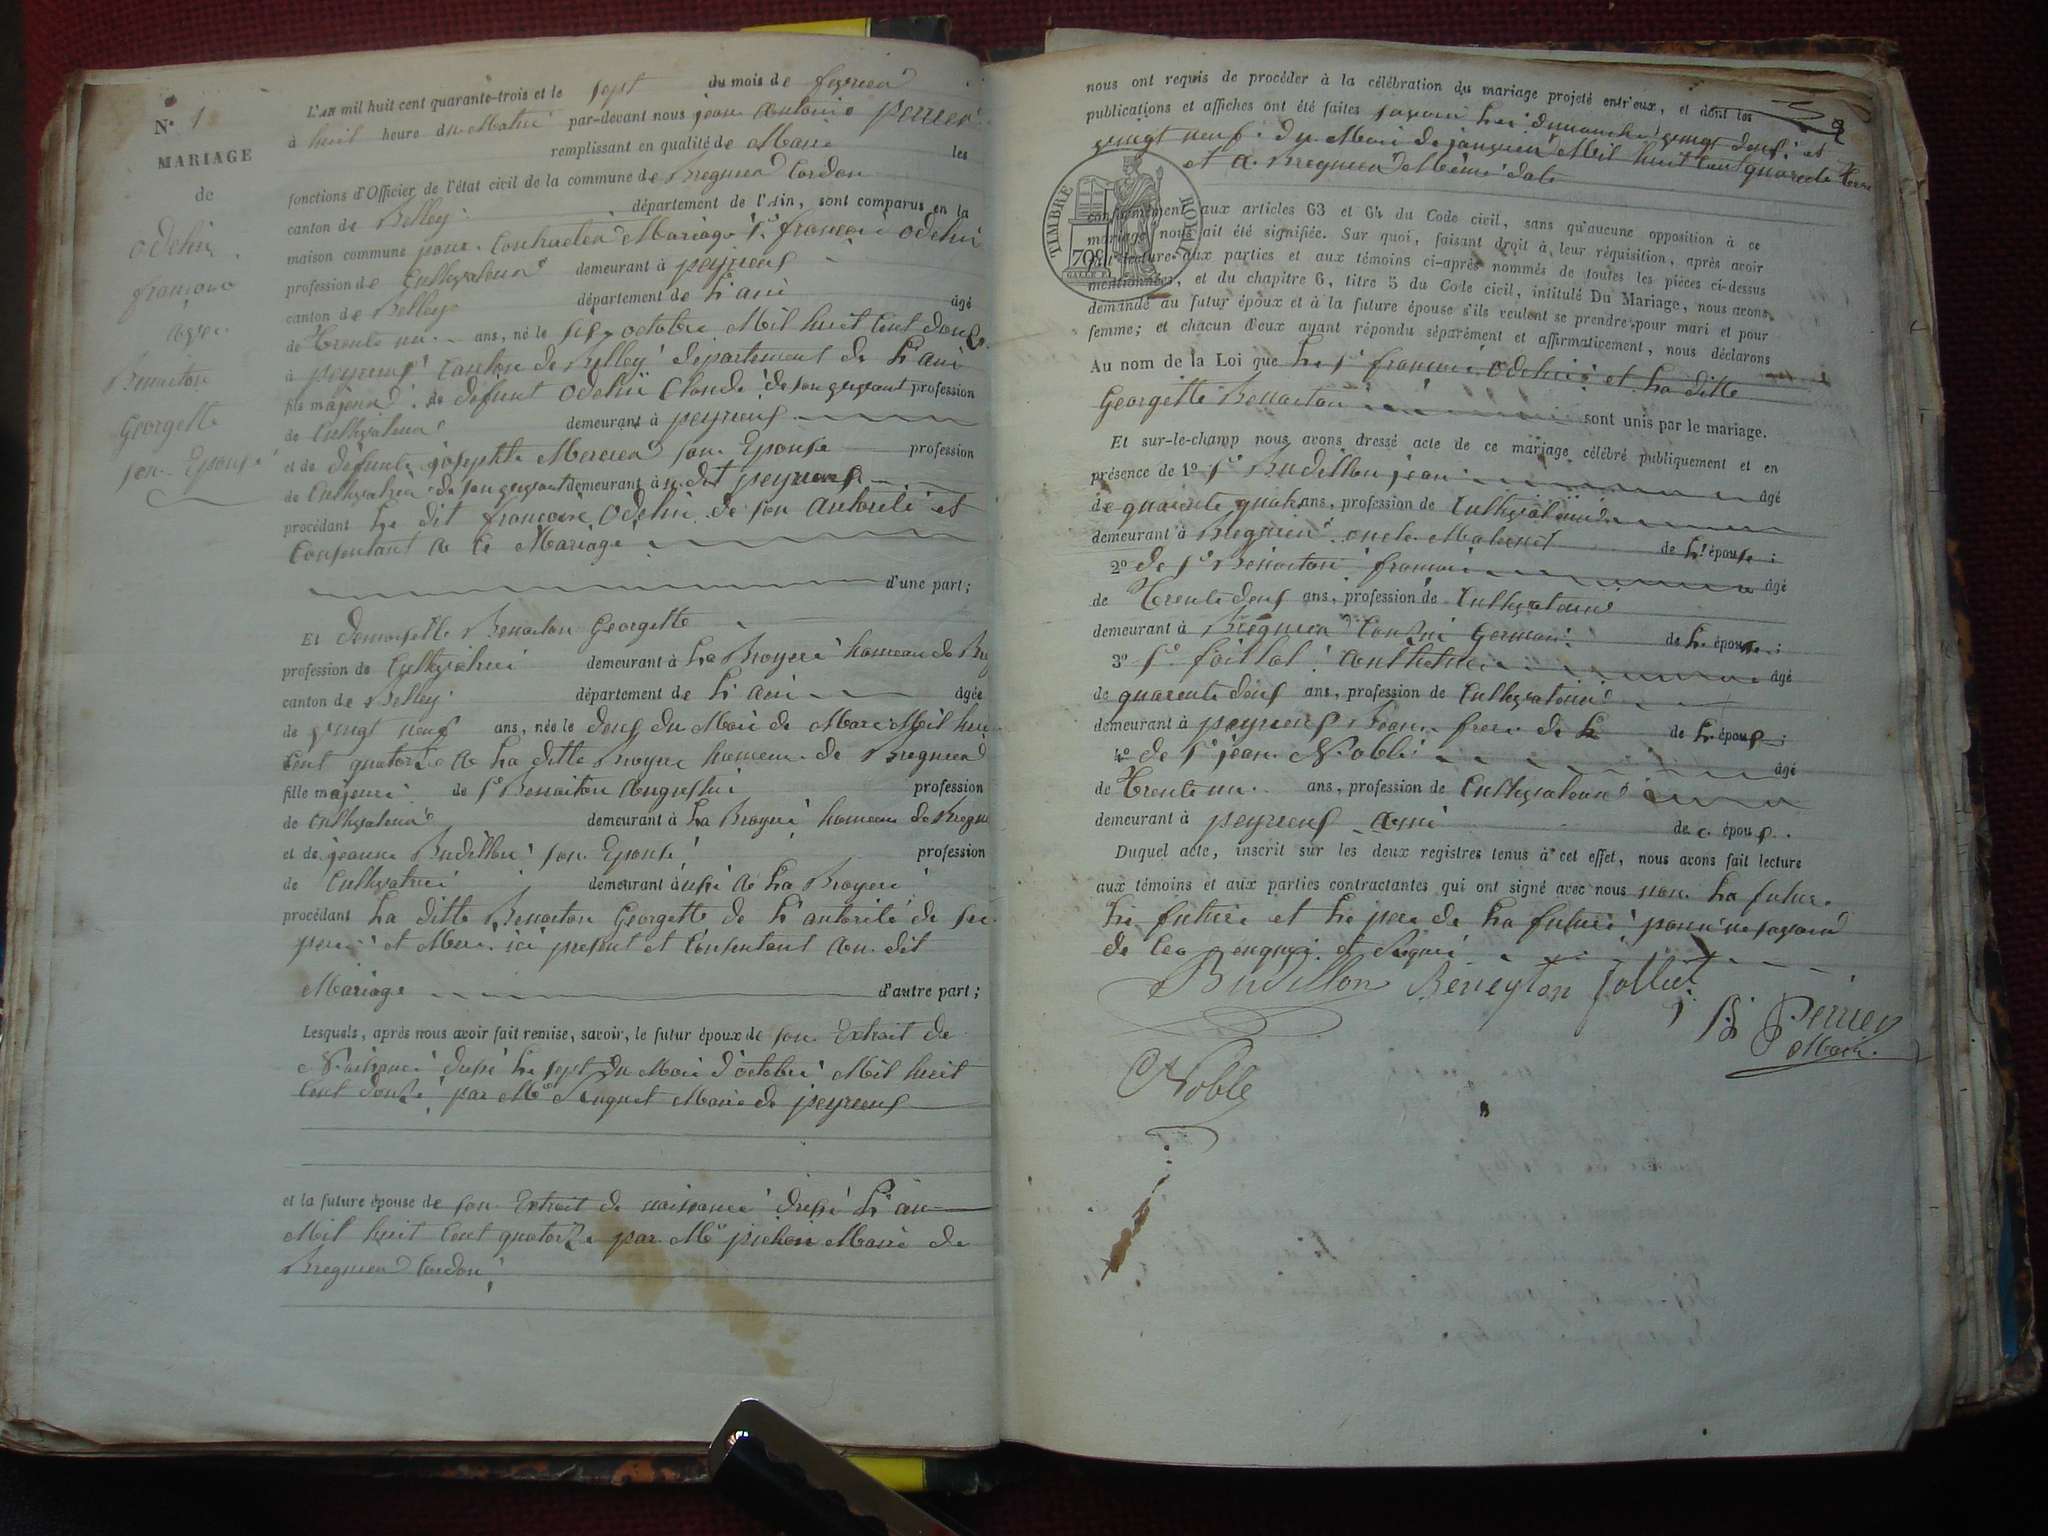 N° 1
MARIAGE
de
odehii
francois
avec
Benaiton
Georgette
son Epouse
L'an mil huit cent quarante-trois et le sept du mois de fevrier
à huit heure du Matin par-devant nous jean Antoine Perrier
remplissant en qualité de Maire les
fonctions d'Officier de l'état civil de la commune de Bregnier Cordon
canton de Belley département de l'Ain, sont comparus en la
maison commune pour Contracter Mariage 1° francois odehii
profession de Cultivateur demeurant à peyrieuf
canton de Belley département de L'ain âgé
de Trente un ans, né le sept octobre Mil huit Cent douze
à peyrieuf Canton de Belley département de L'ain
fils majeur de defunt odehii Claude de son vivant profession
de Cultivateur demeurant à peyrieuf
et de defunte josephte Mercier son Epouse profession
de Cultivatrice de son vivant demeurant au dit peyrieuf
procédant Le dit francois odehii de son autorité et
Consentant a Ce Mariage
d'une part;
Et demoiselle Benaiton Georgette
profession de Cultivatrice demeurant à La Broyere hameau de Breg
canton de Belley département de L'ain âgée
de vingt neuf ans, née le deuf du Mois de Mars Mil huit
Cent quatorze a La ditte Broyere hameau de Bregnier
fille majeure de Sr Benaiton Augustin profession
de Cultivateur demeurant à La Broyere hameau de Bregni
et de jeanne Budillon son Epouse profession
de Cultivatrice demeurant à ussi a La Broyere
procédant La ditte Benaiton Georgette de L'autorité de ses
pere et Mere ici present et Consentant au dit
Mariage d'autre part;
Lesquels, après nous avoir fait remise, savoir, le futur époux de son Extrait de
Naissance dressé Le sept du Mois d'octobre Mil huit
Cent douze par Mr Suguet Maire de peyrieuf
et la future épouse de son Extrait de naissance dressé L'an
Mil huit Cent quatorze par Mr pichon Maire de
Bregnier Cordon
nous ont requis de procéder à la célébration du mariage projeté entr'eux, et dont les
publications et affiches ont été faites savoir Les dimanche vingt deuf et
vingt neuf du Mois de janvier Mil huit Cent quarente Trois
et a Bregnier Même date
TIMBRE ROYAL
70c
conformément aux articles 63 et 64 du Code civil, sans qu'aucune opposition à ce
mariage nous ait été signifiée. Sur quoi, faisant droit à leur réquisition, après avoir
fait lecture aux parties et aux témoins ci-après nommés de toutes les pièces ci-dessus
mentionnées, et du chapitre 6, titre 5 du Code civil, intitulé Du Mariage, nous avons
demandé au futur époux et à la future épouse s'ils veulent se prendre pour mari et pour
femme; et chacun d'eux ayant répondu séparément et affirmativement, nous déclarons
Au nom de la Loi que Le sr francois odehii et La ditte
Georgette Benaiton sont unis par le mariage.
Et sur-le-champ nous avons dressé acte de ce mariage célébré publiquement et en
présence de 1° Sr Budillon jean âgé
de quarente quatre ans, profession de Cultivateur
demeurant à Bregnier oncle Maternel de L'épouse;
2° de Sr Benaiton francois âgé
de Trente deuf ans, profession de Cultivateur
demeurant à Bregnier Cousin Germain de L'épouse;
3° Sr Joillol Anthelme âgé
de quarente deuf ans, profession de Cultivateur
demeurant à peyrieuf Beau frere de L de L'épouf;
4° de Sr jean Noble âgé
de Trente un ans, profession de Cultivateur
demeurant à peyrieuf ami de L épouf.
Duquel acte, inscrit sur les deux registres tenus à cet effet, nous avons fait lecture
aux témoins et aux parties contractantes qui ont signé avec nous non La future
Le future et Le pere de La future pour ne savoir
de Ces enquis et Signé
Budillon Beneyton Jolliet
Perrier
Maire.
Noble